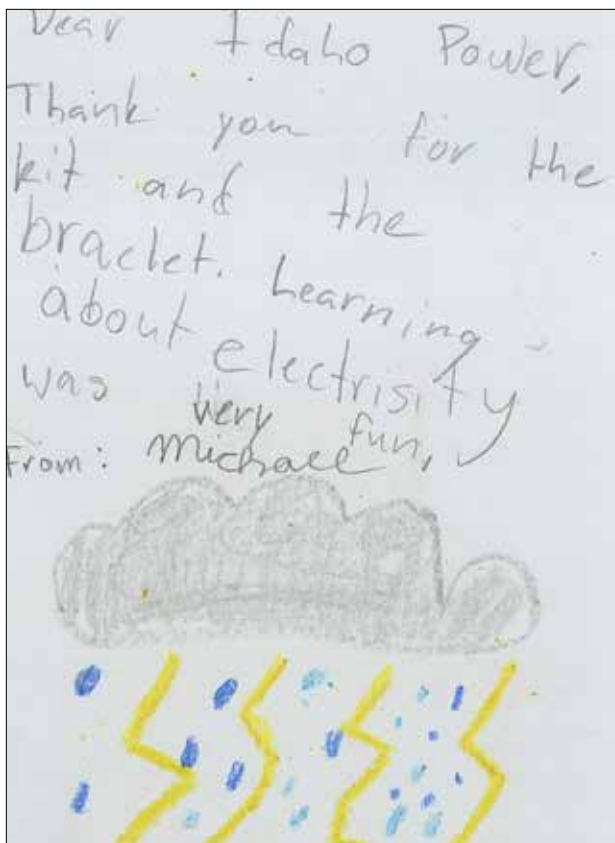 Dear Idaho Power,
Thank you for the
kit and the
braclet. Learning
about electrisity
was very fun,
From: Michael